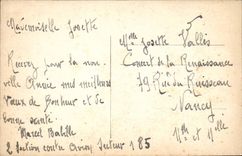 Mademoiselle Josette
Recevez pour la nou-
velle Année mes meilleurs
Vœux de Bonheur et de
bonne santé.
Marcel
2 Section Secteur 185
Mlle Josette Vallès
Concert de la Renaissance
79 Rue du Ruisseau
Nancy
Mthe et Mlle